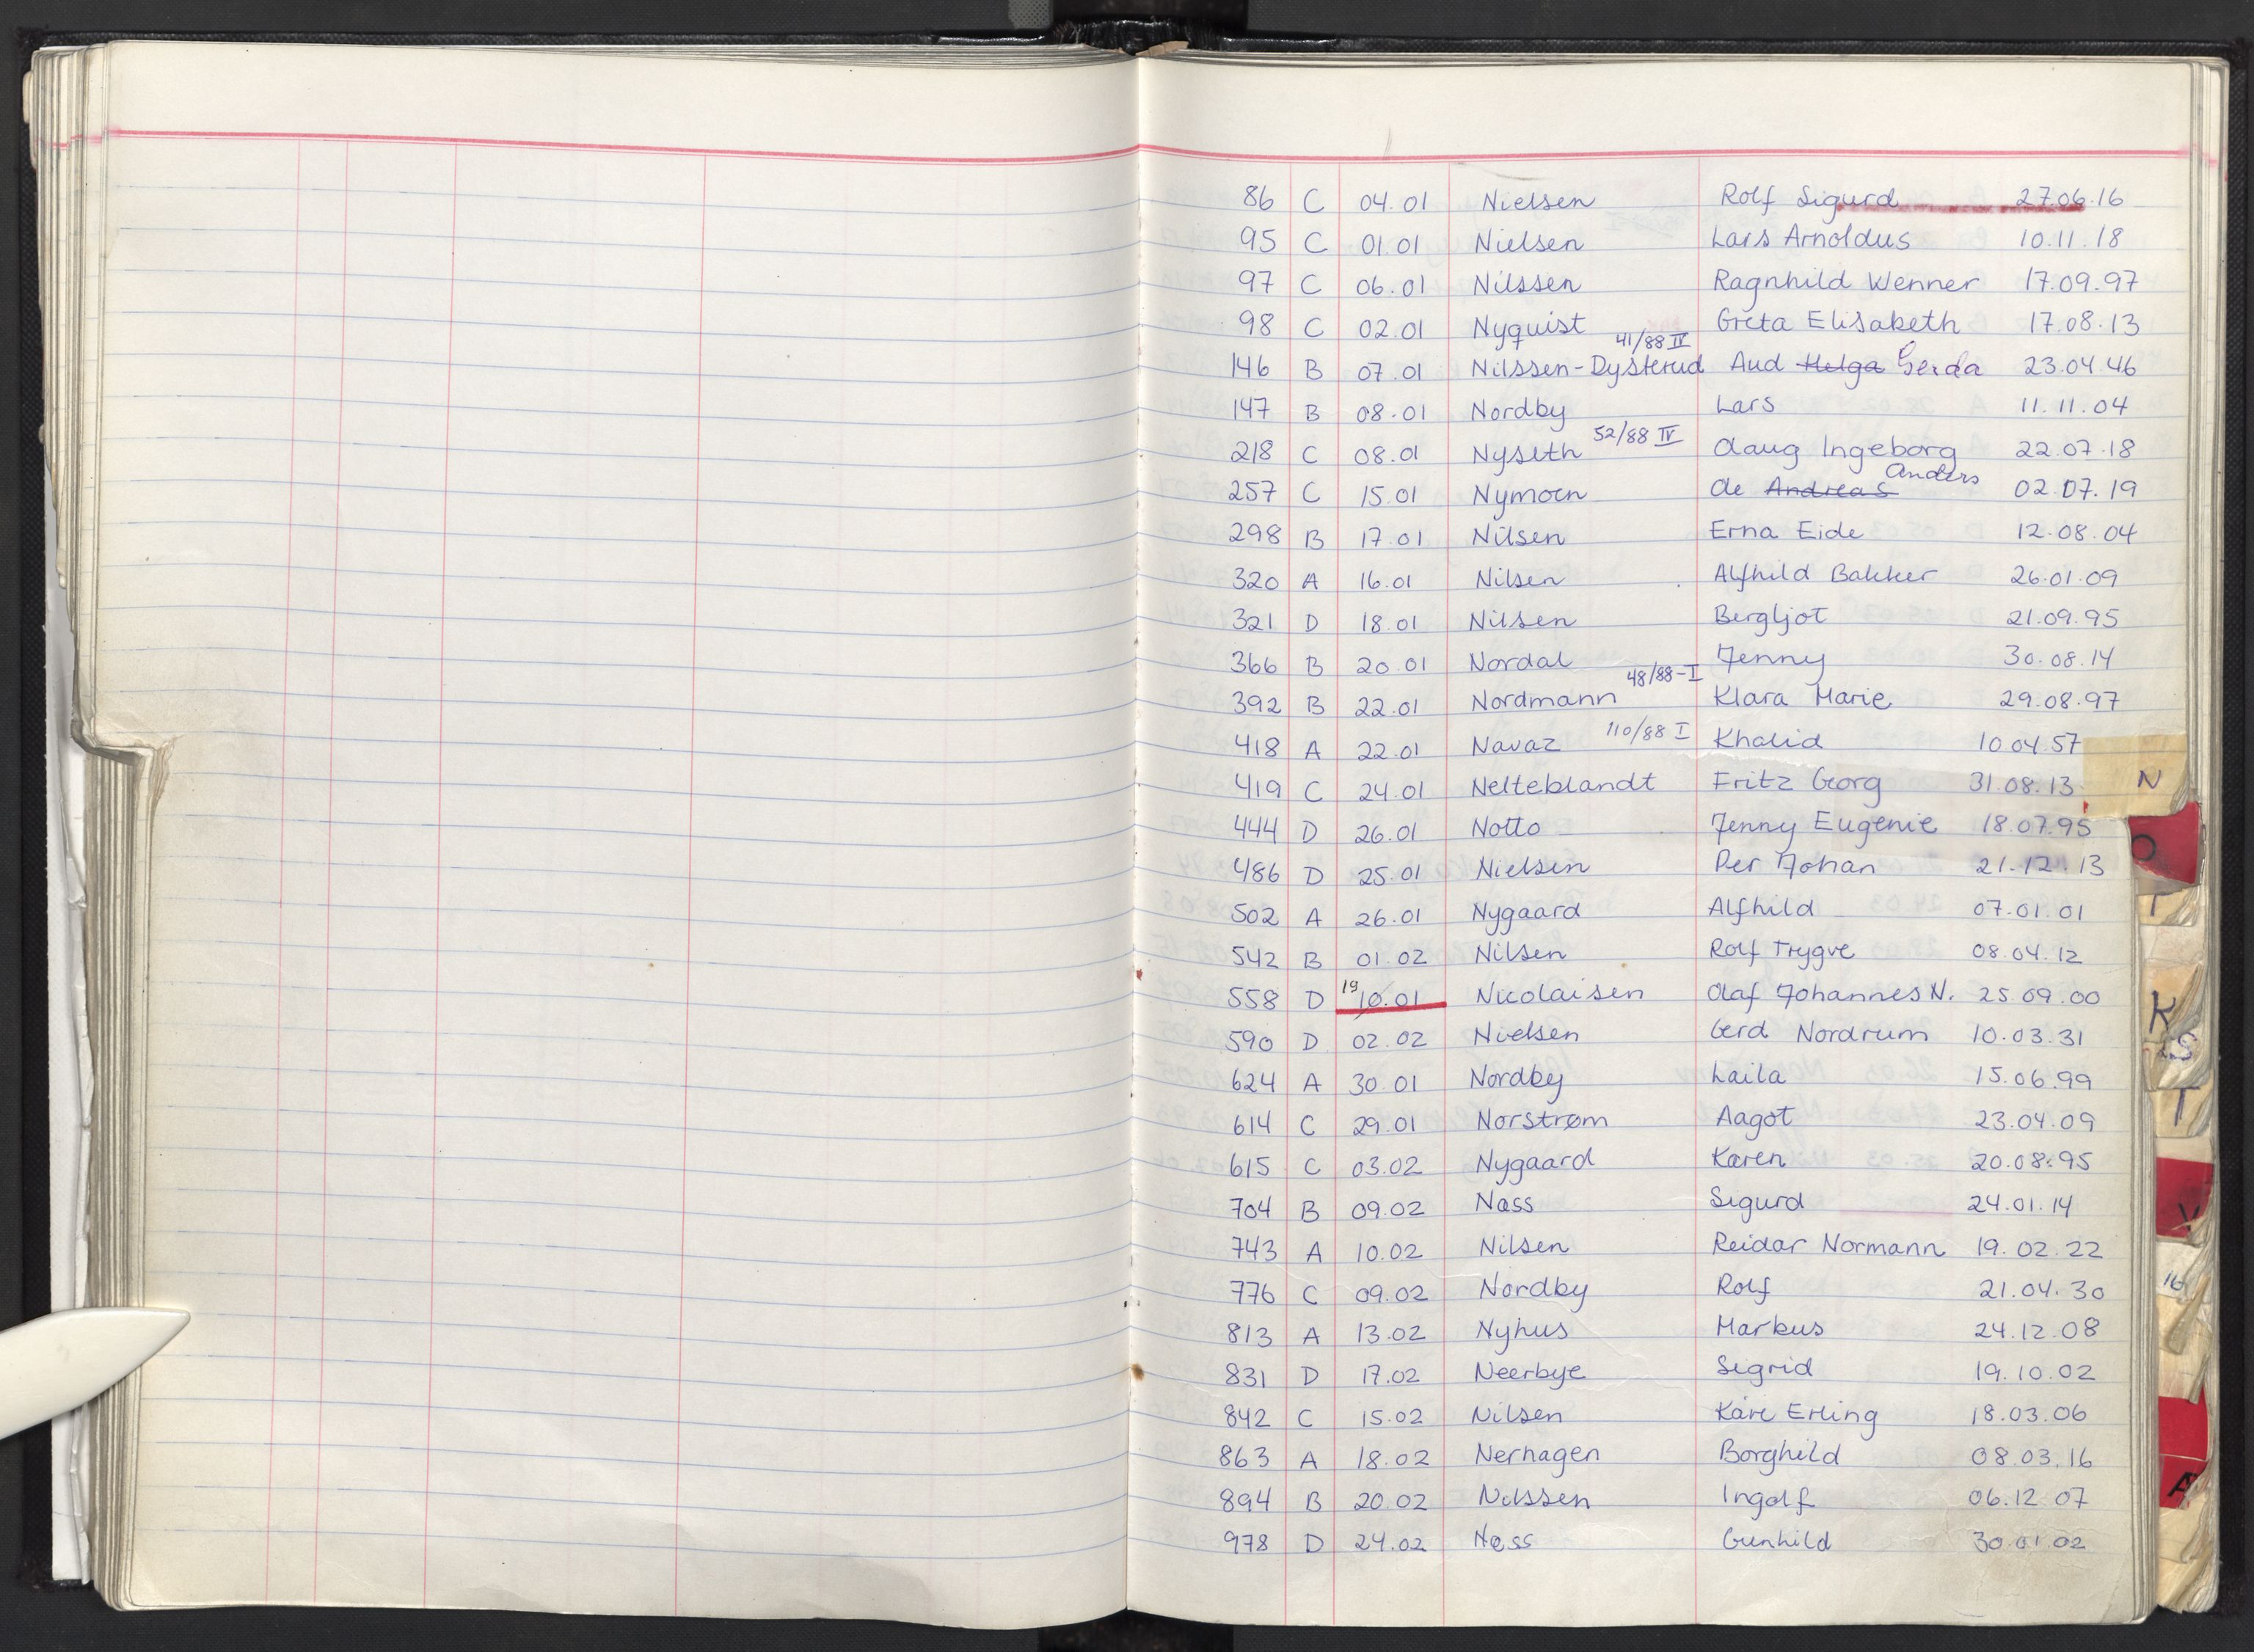 86 C 04.01 Nielsen Rolf Sigurd 27.06.16
95 C 01.01 Nielsen Lars Arnoldus 10.11.18
97 C 06.01 Nilssen Ragnhild Wenner 17.09.97
98 C 02.01 Nyquist Greta Elisabeth 17.08.13
41/88 IV
146 B 07.01 Nilssen-Dysterud Aud Helga Gerda 23.04.46
147 B 08.01 Nordby Lars 11.11.04
218 C 08.01 Nyseth 52/88 IV Olaug Ingeborg 22.07.18
Anders
257 C 15.01 Nymoen Ole Andreas 02.07.19
298 B 17.01 Nilsen Erna Eide 12.08.04
320 A 16.01 Nilsen Alfhild Bakker 26.01.09
321 D 18.01 Nilsen Bergljot 21.09.95
366 B 20.01 Nordal Jenny 30.08.14
48/88-I
392 B 22.01 Nordmann Klara Marie 29.08.97
418 A 22.01 Navaz 110/88 I Khalid 10.04.57
419 C 24.01 Nelteblandt Fritz Georg 31.08.13
N
444 D 26.01 Notto Jenny Eugenie 18.07.95
O
486 D 25.01 Nielsen Per Johan 21.12.13
502 A 26.01 Nygaard Alfhild 07.01.01
542 B 01.02 Nilsen Rolf Trygve 08.04.12
558 D 19 10.01 Nicolaisen Olaf Johannes N. 25.09.00
K
590 D 02.02 Nielsen Gerd Nordrum 10.03.31
S
624 A 30.01 Nordby Laila 15.06.99
T
614 C 29.01 Norstrøm Aagot 23.04.09
615 C 03.02 Nygaard Karen 20.08.95
704 B 09.02 Næss Sigurd 24.01.14
V
743 A 10.02 Nilsen Reidar Normann 19.02.22
776 C 09.02 Nordby Rolf 21.04.30
16
813 A 13.02 Nyhus Markus 24.12.08
831 D 17.02 Neerbye Sigrid 19.10.02
842 C 15.02 Nilsen Kåre Erling 18.03.06
863 A 18.02 Nerhagen Borghild 08.03.16
894 B 20.02 Nilssen Ingolf 06.12.07
978 D 24.02 Næss Gunhild 30.01.02